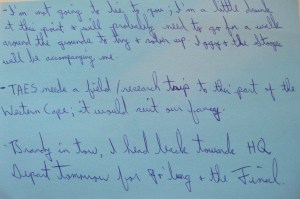 I'm not going to lie to you; I'm a little drunk
at this point & will probably need to go for a walk
around the grounds to try & sober up. Iggy & the Stooges
will be accompanying me.
• TAES needs a field/research trip to this part of the
Western Cape; it would suit our fancy.
• Brandy in tow, I head back towards HQ.
Depart tomorrow for & the Final